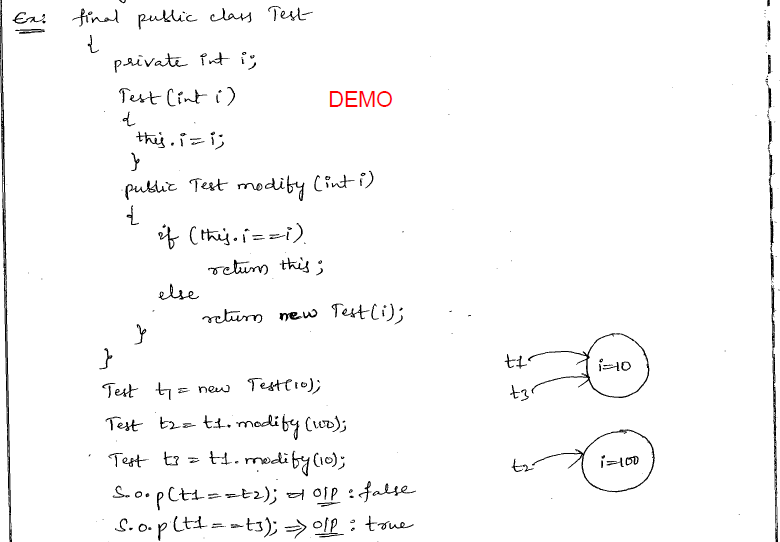 Ex: final public class Test
{
private int i;
Test (int i)
DEMO
{
this.i = i;
}
public Test modify (int i)
{
if (this.i == i)
return this;
else
return new Test(i);
}
}
Test t1 = new Test(10);
Test t2 = t1.modify(100);
Test t3 = t1.modify(10);
S.o.p(t1 == t2); ⇒ o/p : false
S.o.p(t1 == t3); ⇒ o/p : true
t1
t3
i=10
t2
i=100